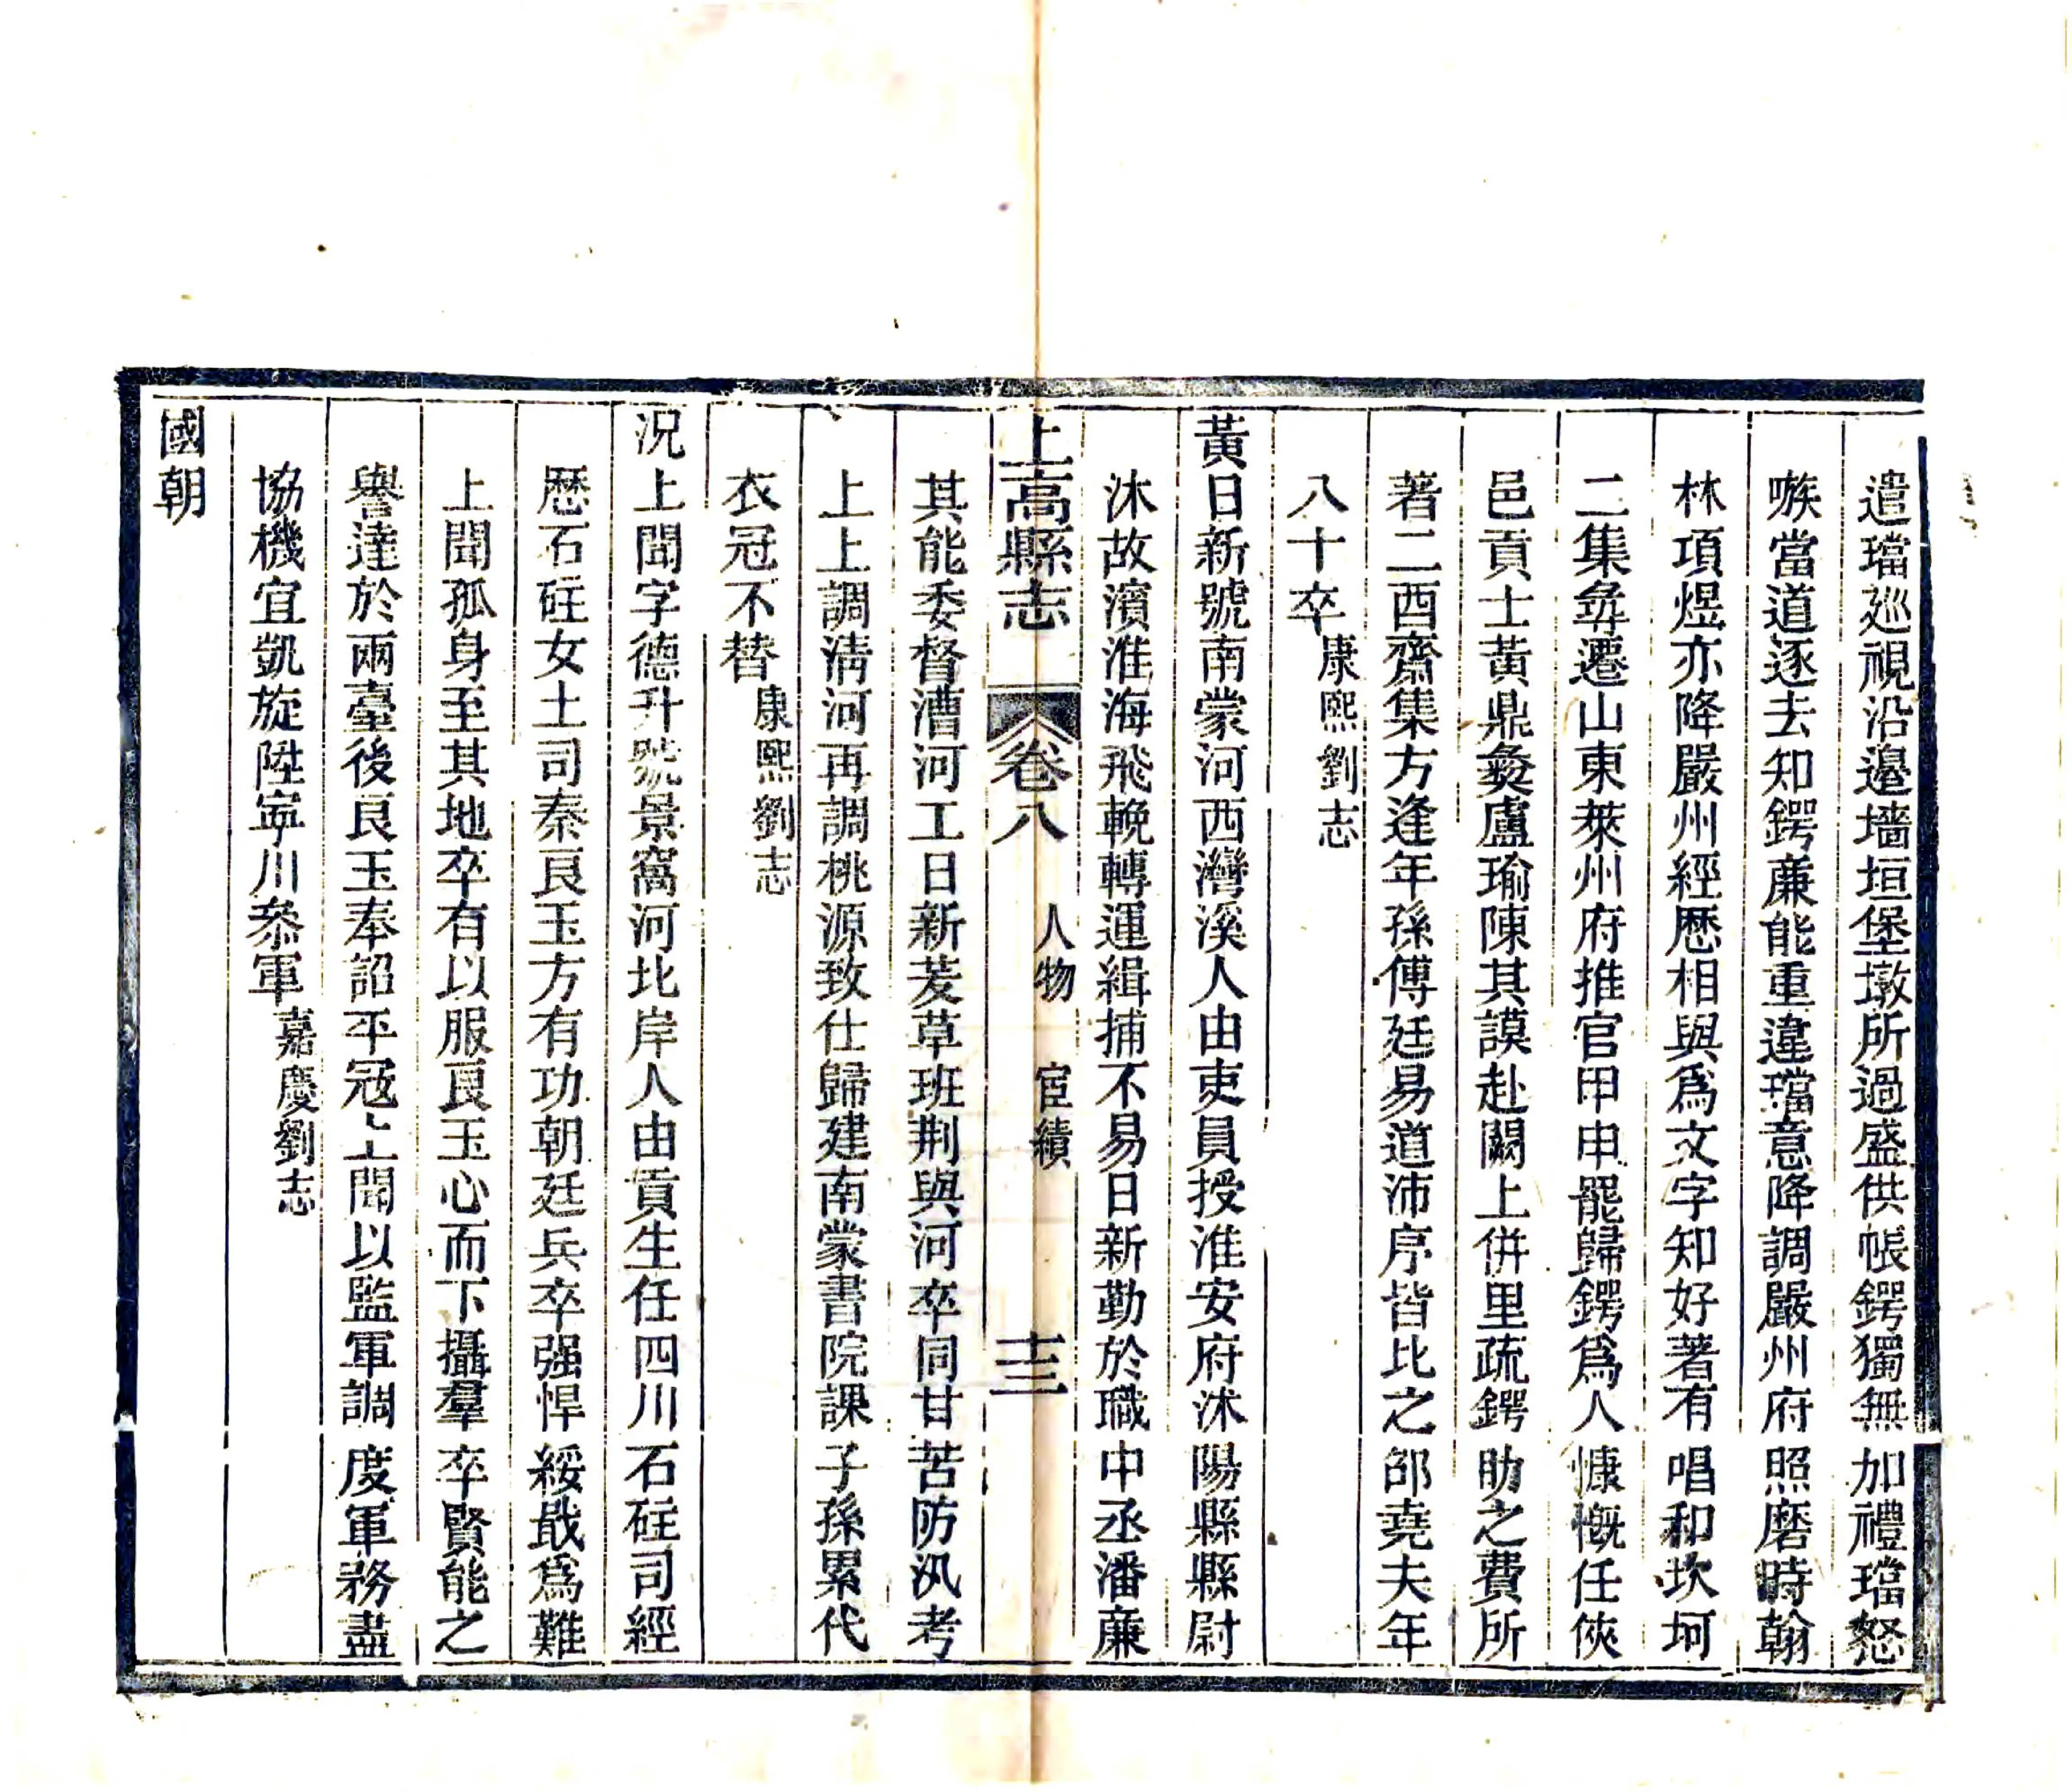 遣璫廵視沿邉墻垣堡墩所過盛供帳鍔獨無加禮璫怒
嗾當道逐去知鍔廉能重違璫意降調嚴州府照磨時翰
林項煜亦降嚴州經歷相與爲文字知好著有唱和坎坷
二集尋遷山東萊州府推官甲申罷歸鍔爲人慷慨任俠
邑貢士黃鼎彜盧瑜陳其謨赴闕上併里疏鍔助之費所
著二西齋集方逢年孫傅廷易道沛序皆比之邵堯夫年
八十卒康熙劉志
黃日新號南蒙河西灣溪人由吏員授淮安府沭陽縣縣尉
沭故濱淮海飛輓轉運緝捕不易日新勤於職中丞潘廉
其能委督漕河工日新茇草班荆與河卒同甘苦防汛考
上上調淸河再調桃源致仕歸建南蒙書院課子孫累代
衣冠不替康熙劉志
況上聞字德升號景窩河北岸人由貢生任四川石砫司經
歷石砫女土司秦良玉方有功朝廷兵卒强悍綏戢爲難
上聞孤身至其地卒有以服良玉心而下攝羣卒賢能之
譽達於兩臺後良玉奉詔平寇上聞以監軍調度軍務盡
協機宜凱旋陞寧川叅軍嘉慶劉志
國朝
上高縣志 卷八 人物 宦績 十三